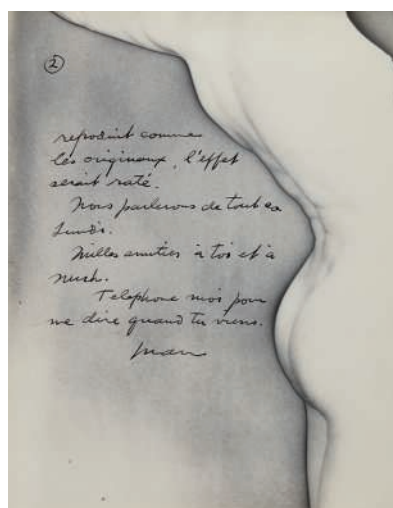 ②
reproduit comme
les originaux, l'effet
serait raté.
Nous parlerons de tout ça
Lundi.
Milles amitiés à toi et à
Nush.
Telephone moi pour
me dire quand tu viens.
Man